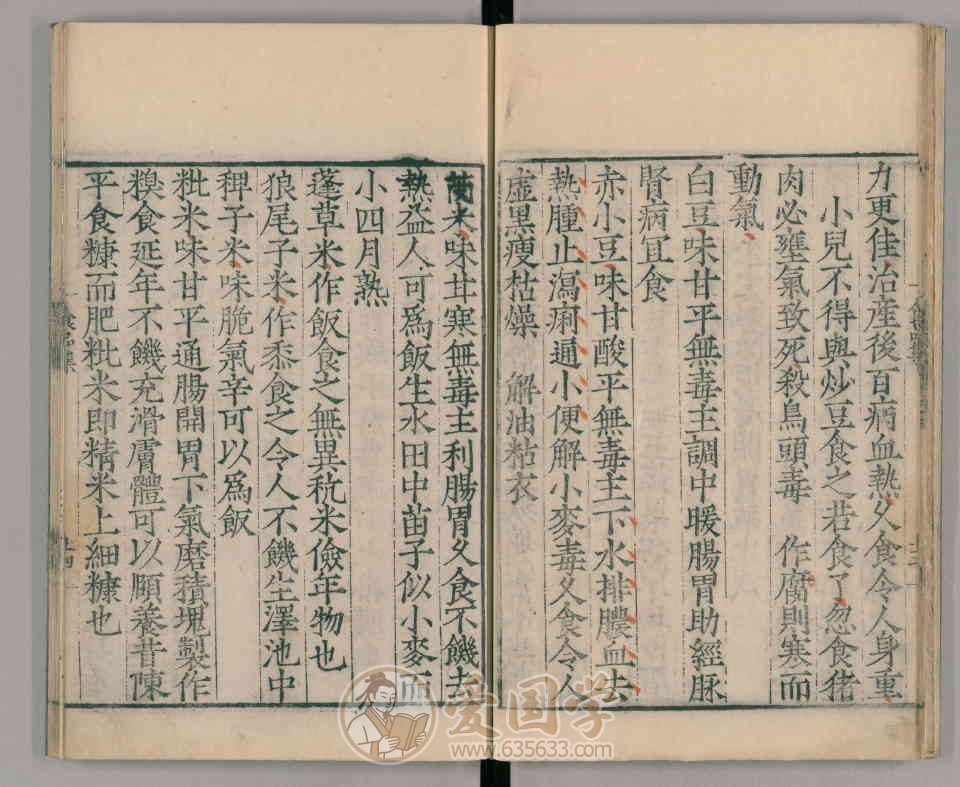 力更佳治產後百病血熱久食令人身重
小兒不得與炒豆食之若食了忽食猪
肉必壅氣致死殺烏頭毒 作腐則寒而
動氣
白豆味甘平無毒主調中暖腸胃助經脉
腎病宜食
赤小豆味甘酸平無毒主下水排膿血去
熱腫止瀉痢通小便解小麥毒久食令人
虛黑瘦枯燥 解油粘衣
䒽米味甘寒無毒主利腸胃久食不饑去
熱益人可為飯生水田中苗子似小麥而
小四月熟
蓬草米作飯食之無異秔米儉年物也
狼尾子米作黍食之令人不饑生澤池中
稗子米味脆氣辛可以為飯
粃米味甘平通腸開胃下氣磨積塊製作
糗食延年不饑充滑膚體可以頤養昔陳
平食糠而肥粃米即精米上細糠也
爱国学
www.635633.com